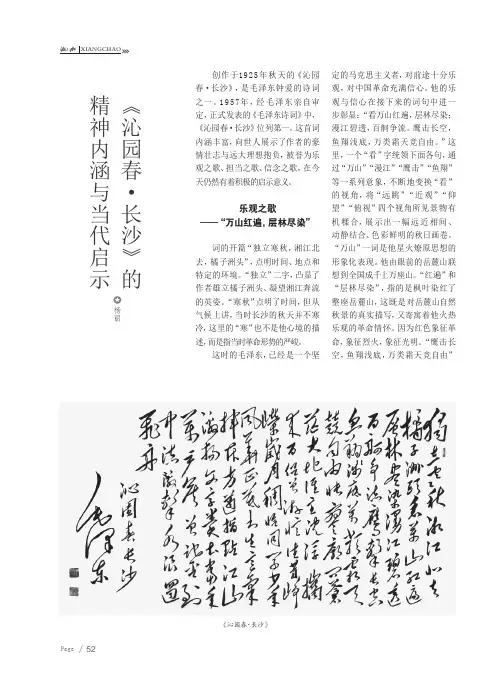 湘潮 XIANGCHAO
《沁园春·长沙》的
精神内涵与当代启示
杨丽
创作于1925年秋天的《沁园
春·长沙》,是毛泽东钟爱的诗词
之一。1957年,经毛泽东亲自审
定,正式发表的《毛泽东诗词》中,
《沁园春·长沙》位列第一。这首词
内涵丰富,向世人展示了作者的豪
情壮志与远大理想抱负,被誉为乐
观之歌、担当之歌、信念之歌,在今
天仍然有着积极的启示意义。
乐观之歌
——“万山红遍,层林尽染”
词的开篇“独立寒秋,湘江北
去,橘子洲头”,点明时间、地点和
特定的环境。“独立”二字,凸显了
作者雄立橘子洲头、凝望湘江奔流
的英姿。“寒秋”点明了时间,但从
气候上讲,当时长沙的秋天并不寒
冷,这里的“寒”也不是他心境的描
述,而是指当时革命形势的严峻。
这时的毛泽东,已经是一个坚
定的马克思主义者,对前途十分乐
观。对中国革命充满信心。他的乐
观与信心在接下来的词句中进一
步彰显:“看万山红遍,层林尽染;
漫江碧透,百舸争流。鹰击长空,
鱼翔浅底,万类霜天竞自由。”这
里,一个“看”字统领下面各句,通
过“万山”“漫江”“鹰击”“鱼翔”
等一系列意象,不断地变换“看”
的视角,将“远眺”“近观”“仰
望”“俯视”四个视角所见景物有
机糅合,展示出一幅远近相间、
动静结合、色彩鲜明的秋日画卷。
“万山”一词是他星火燎原思想的
形象化表现。他由眼前的岳麓山联
想到全国成千上万座山。“红遍”和
“层林尽染”,指的是枫叶染红了
整座岳麓山,这既是对岳麓山自然
秋景的真实描写,又寄寓着他火热
乐观的革命情怀。因为红色象征革
命,象征烈火,象征光明。“鹰击长
空,鱼翔浅底,万类霜天竞自由”
独立寒秋湘江北去
橘子洲头看万山红遍
层林尽染漫江碧透
百舸争流鹰击长空
鱼翔浅底万类霜天
竞自由怅寥廓问苍
茫大地谁主沉浮携
来百侣曾游忆往昔峥
嵘岁月稠恰同学少年
风华正茂书生意气
挥斥方遒指点江山
激扬文字粪土当年
万户侯曾记否到
中流击水浪遏
飞舟
沁园春 长沙
毛泽东
《沁园春·长沙》
Page / 52